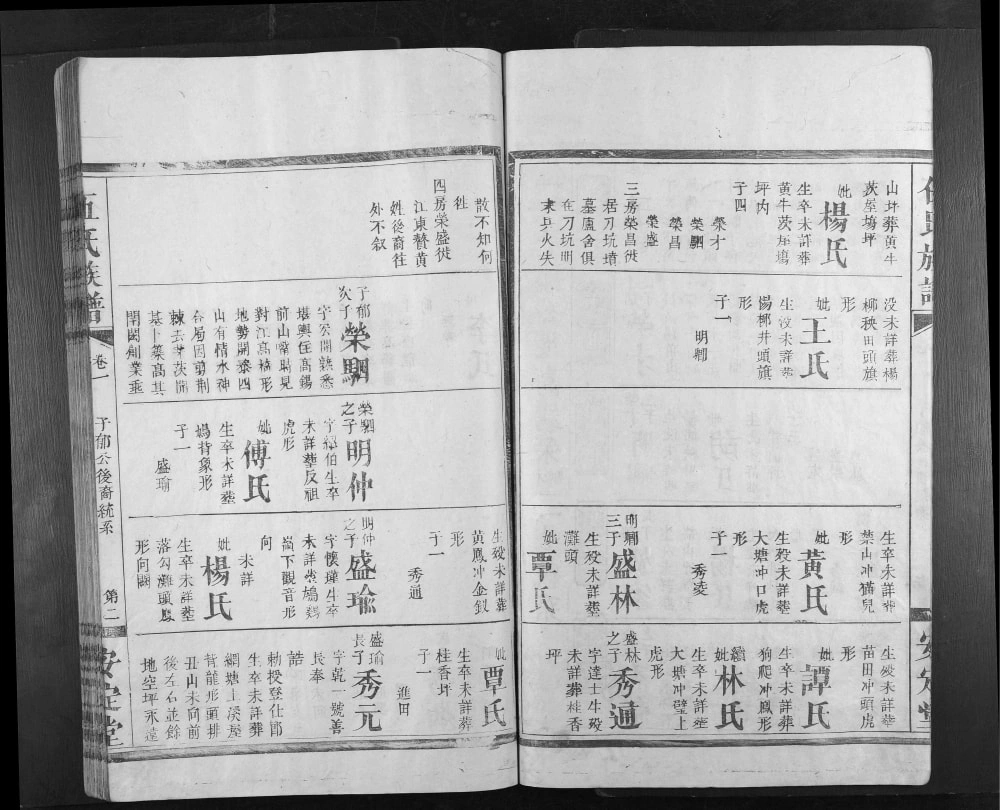 山坪葬黄牛
茨屋塆坪
妣楊氏
生卒未詳葬
黄牛茨屋塆
坪内
子四
榮才
榮駟
榮昌
榮盛
三房榮昌徙
居刀坑墳
墓廬舍俱
在刀坑明
末兵火失
没未詳葬楊
柳秧田頭旗
形
妣王氏
生没未詳葬
楊柳井頭旗
形
子一
明卿
生卒未詳葬
禁山冲猫兒
形
妣黄氏
生殁未詳葬
大塘冲口虎
形
子一
秀凌
明卿三子盛林
生殁未詳葬
灘頭
妣覃氏
生殁未詳葬
苗田冲頭虎
形
妣譚氏
生卒未詳葬
狗爬冲鳳形
續妣林氏
生卒未詳葬
大塘冲壁上
虎形
盛林之子秀通
字達士生殁
未詳葬桂香
坪
伍氏族譜
卷一
子郁公後裔統系
第二
安定堂
散不知何
徃
四房榮盛徙
江東贅黄
姓後裔徃
外不叙
子郁次子榮駟
字宏開熟悉
堪輿住高錫
前山嘴時見
對江高橋形
地勢開泰四
山有情水神
合局因剪荆
棘去茅茨開
基上築高其
閈閎創業垂
榮駟之子明仲
字紹伯生卒
未詳葬反祖
虎形
妣傅氏
生卒未詳葬
塆背象形
子一
盛瑜
生殁未詳葬
黄鳳冲金釵
形
子一
秀通
明仲之子盛瑜
字懷瑾生卒
未詳葬鳩鷄
崗下觀音形
向
未詳
妣楊氏
生卒未詳葬
落勾灘頭鳳
形向闕
妣覃氏
生卒未詳葬
桂香坪
子一
進田
盛瑜長子秀元
字乾一號善
長奉
誥
勅授登仕郎
生卒未詳葬
網塘上溪屋
背龍形頭排
丑山未向前
後左右並餘
地空坪永遠